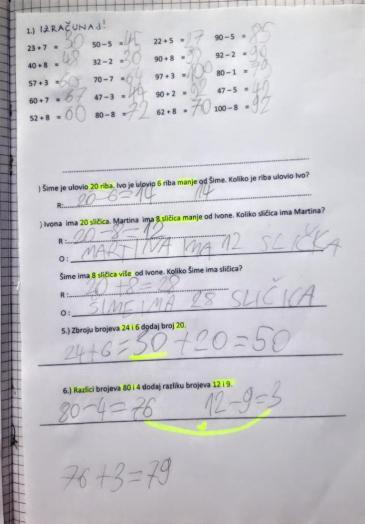 1.) IZRAČUNAJ!
23 + 7 = 30 50 – 5 = 45 22 + 5 = 27 90 – 5 = 85
40 + 8 = 48 32 – 2 = 30 90 + 8 = 98 92 – 2 = 90
57 + 3 = 70 – 7 = 97 + 3 = 100 80 – 1 = 79
60 + 7 = 67 47 – 3 = 44 90 + 2 = 92 47 – 5 = 42
52 + 8 = 60 80 – 8 = 72 62 + 8 = 70 100 – 8 = 92
) Šime je ulovio 20 riba. Ivo je ulovio 6 riba manje od Šime. Koliko je riba ulovio Ivo?
R: 20-6=14 14
) Ivona ima 20 sličica. Martina ima 8 sličica manje od Ivone. Koliko sličica ima Martina?
R : 20-8=12
O : MARTINA IMA 12 SLIČKA
Šime ima 8 sličica više od Ivone. Koliko Šime ima sličica?
R : 20+8=28
O : ŠIME IMA 28 SLIČICA
5.) Zbroju brojeva 24 i 6 dodaj broj 20.
24+6=30+20=50
6.) Razlici brojeva 80 i 4 dodaj razliku brojeva 12 i 9.
80-4=76 12-9=3
76+3=79